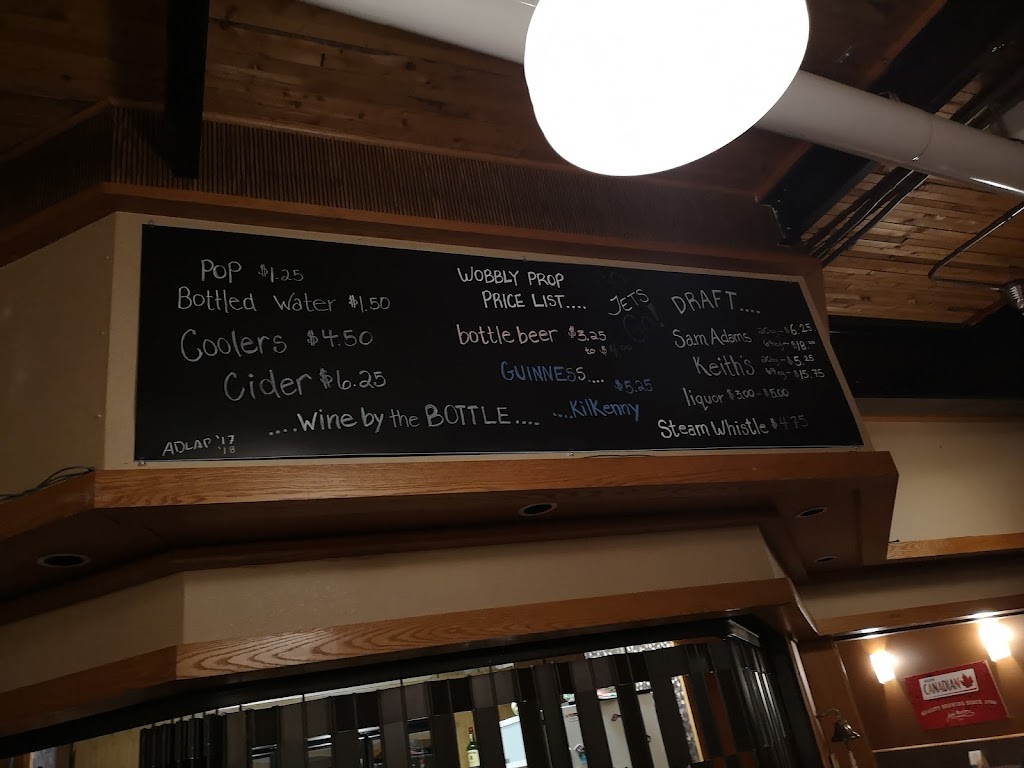 POP $1.25
Bottled Water $1.50
Coolers $4.50
Cider $6.25
....Wine by the BOTTLE....
ADLAP '17
'18
WOBBLY PROP
PRICE LIST....
bottle beer $3.25
to $4.00
GUINNESS....
$5.25
....Kilkenny
JETS
Go!
DRAFT....
Sam Adams 20oz - $6.25
69oz - $18.00
Keith's 20oz - $5.25
69oz - $15.75
liquor $3.00 - $5.00
Steam Whistle $4.75
CANADIAN